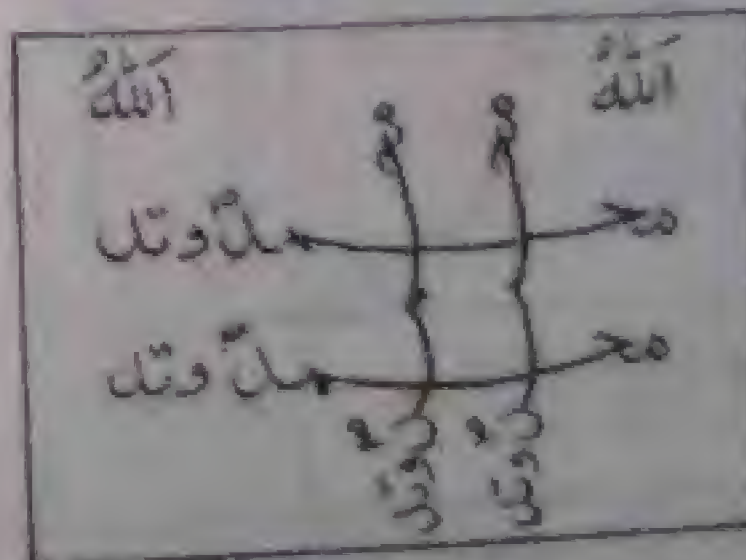 اَللهُ اَللهُ
محمدٌ وتد
محمدٌ وتد
محمدٌ وتد
محمدٌ وتد